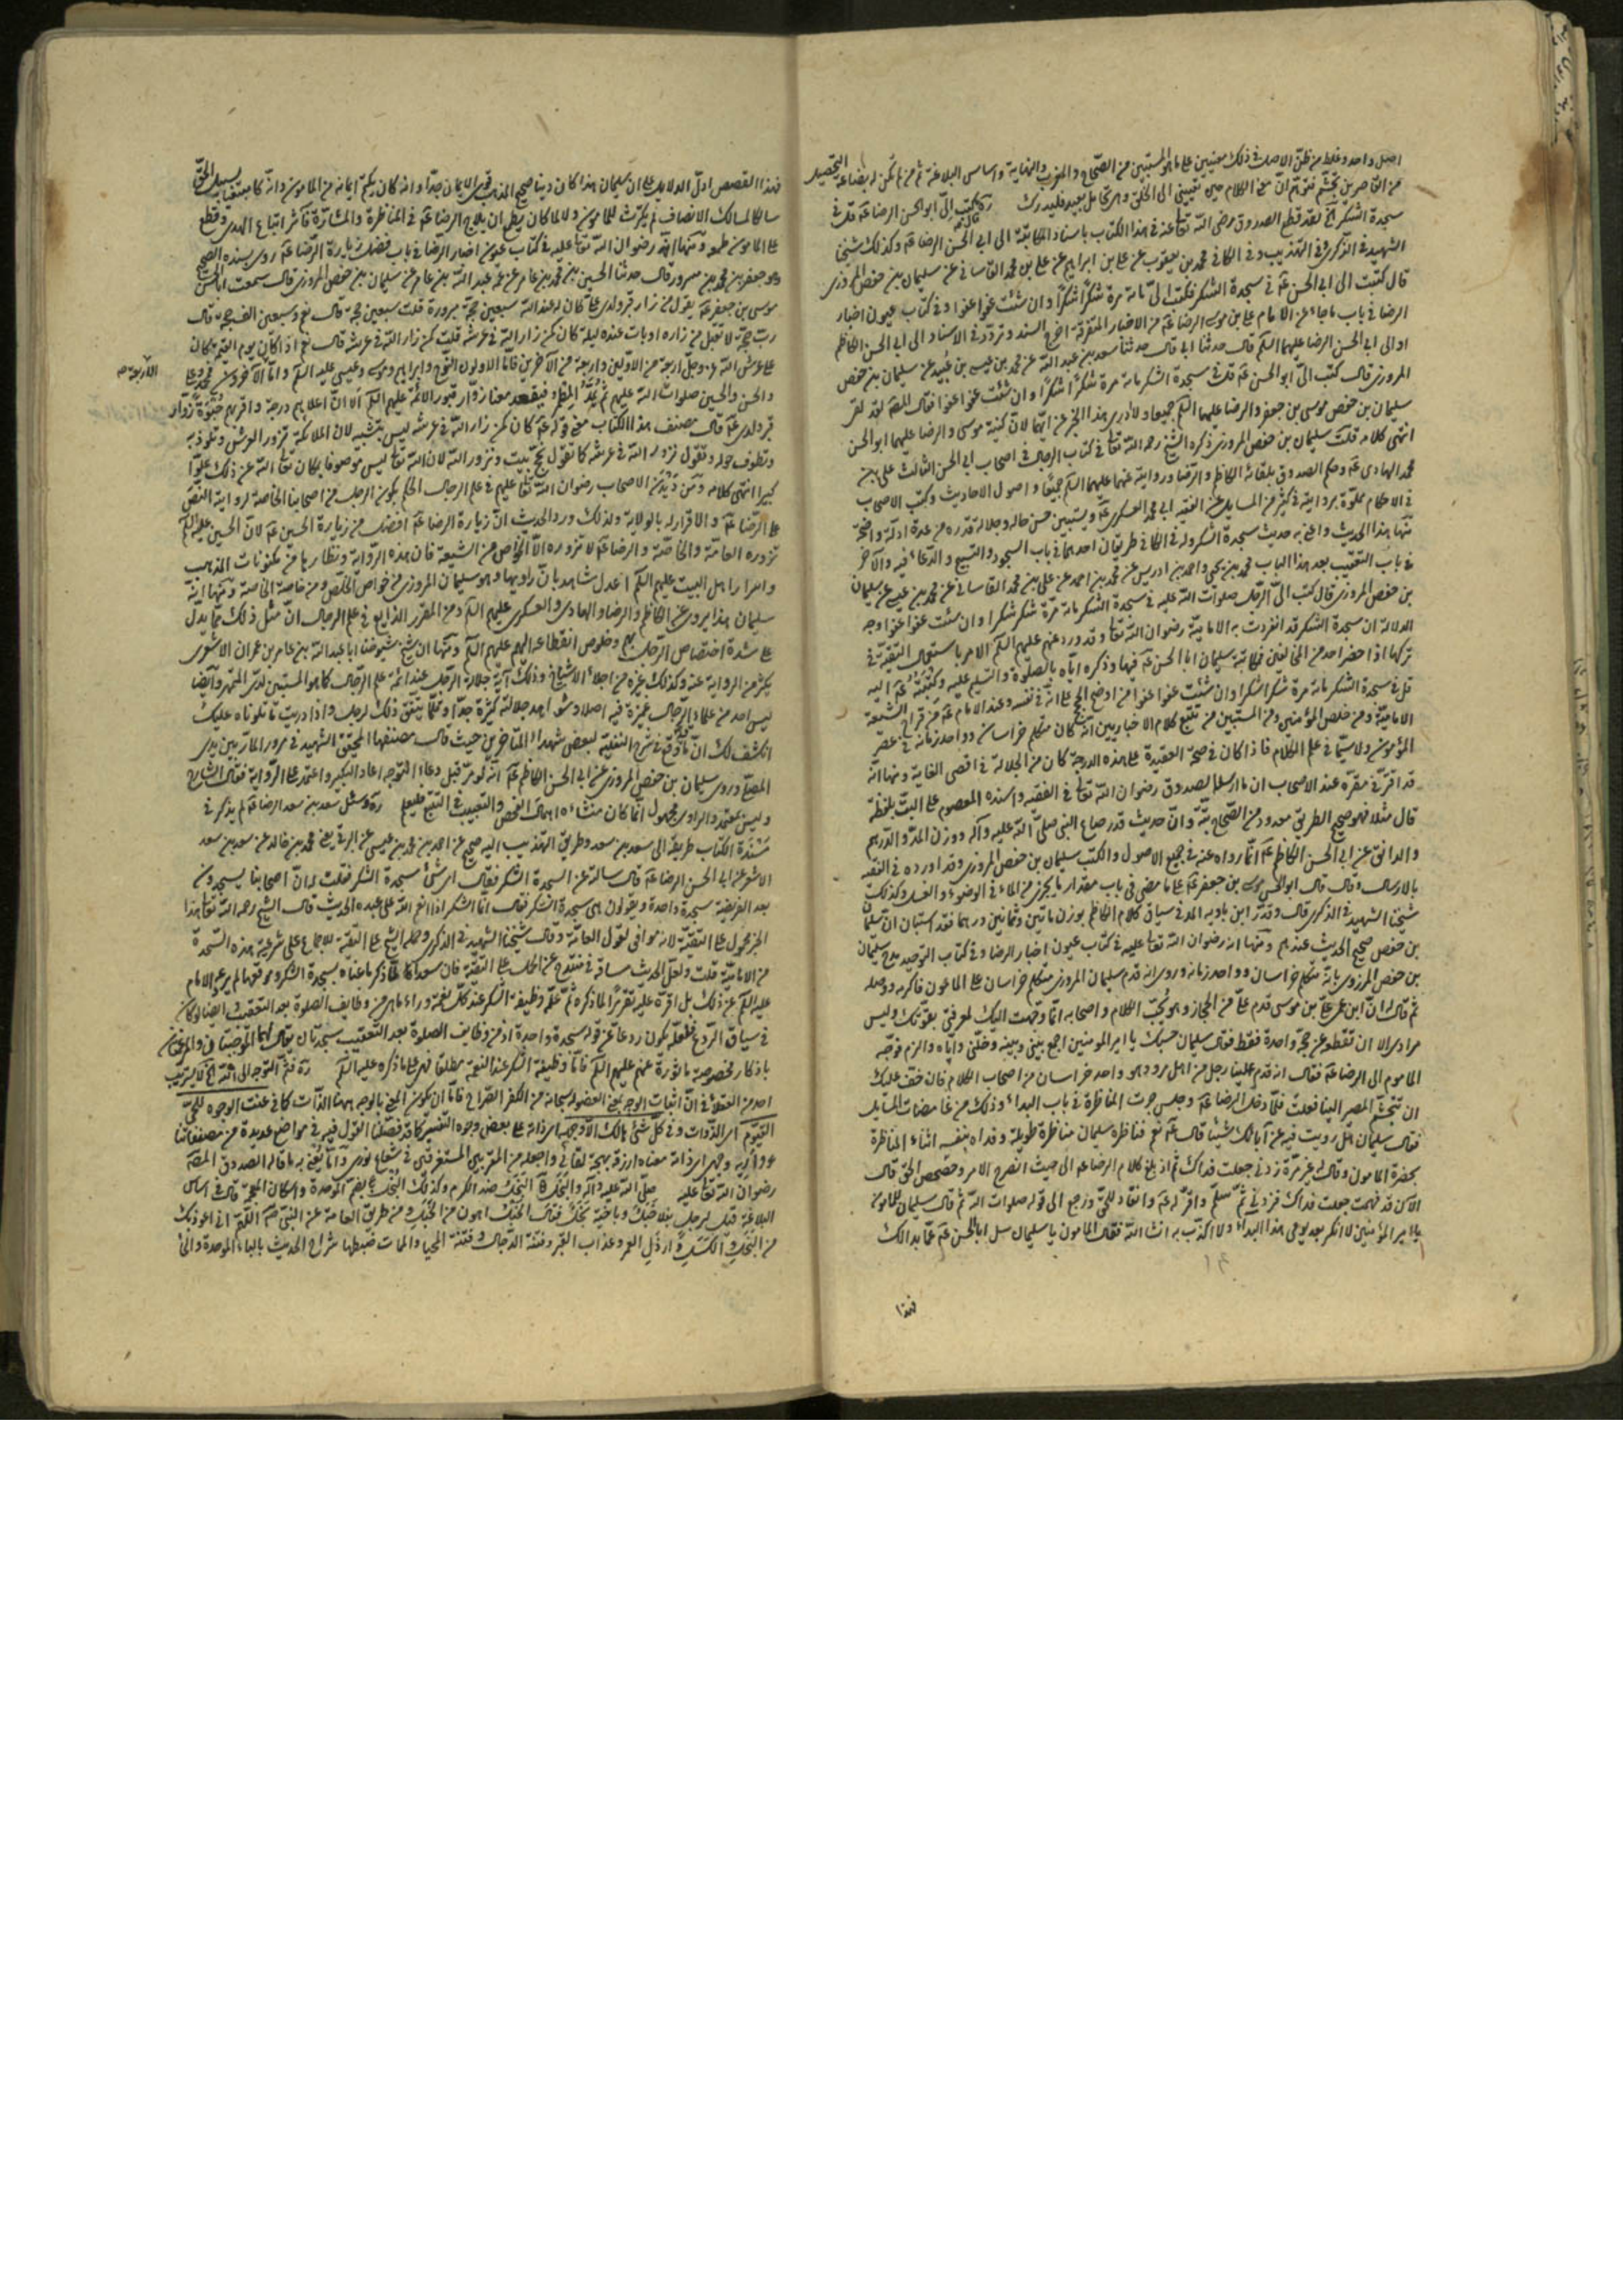 اصل واحد وغلط من ظن الاصل في ذلك معنيين على ما هو المستبين من الصحاح والمغرب والنهاية واساس البلاغة ثم من لم تكن له بضاعة التحصيل
من القاصرين تجشم فتوهم ان الكلام حين يعيني الى الخلق والتحامل بعيد فليدرك كتب الي ابو الحسن الرضا ع قل في
سجدة الشكر الخ لقد قطع الصدوق رضي الله تعا عنه في هذا الكتاب باسناد المكاتبة الى ابي الحسن الرضا ع وكذلك شيخنا
الشهيد في الذكرى وفي التهذيب وفي الكافي محمد بن يعقوب عن علي بن ابراهيم عن علي بن محمد القاساني عن سليمان بن حفص المروزي
قال كتبت الى ابي الحسن ع في سجدة الشكر فكتب الي مائة مرة شكرا شكرا وان شئت عفوا عفوا وفي كتاب عيون اخبار
الرضا في باب ما جاء عن الامام علي بن موسى الرضا ع من الاخبار المتفرقة اخرج السند وتردد في الاسناد الى ابي الحسن الكاظم
او الى ابي الحسن الرضا عليهما السلم قال حدثنا ابي قال حدثنا سعد بن عبد الله عن محمد بن عيسى بن عبيد عن سليمان بن حفص
المروزي قال كتب الي ابو الحسن ع قل في سجدة الشكر مائة مرة شكرا شكرا وان شئت عفوا عفوا فقال المصنف لقد لقى
سليمان بن حفص موسى بن جعفر والرضا عليهما السلم جميعا ولا ادري هذا الخبر عن ايهما لان كنية موسى والرضا عليهما ابو الحسن
انتهى كلامه قلت سليمان بن حفص المروزي ذكره الشيخ رحمه الله تعا في كتاب الرجال في اصحاب ابي الحسن الثالث علي بن
محمد الهادي ع وحكم الصدوق بلقائه الكاظم والرضا وروايته عنهما عليهما السلم جميعا واصول الاحاديث وكتب الاصحاب
في الاحكام مملوة بروايته في كثير من المسايل عن الفقيه ابي محمد العسكري ع ويستبين حسن حاله وجلالة قدره من عدة ادلة واضحة
منها هذا الحديث واعني به حديث سجدة الشكر وله في الكافي طريقان احدهما في باب السجود والتسبيح والدعاء فيه والآخر
في باب التعقيب بعد هذا الباب محمد بن يحيى واحمد بن ادريس عن محمد بن احمد عن علي بن محمد القاساني عن محمد بن عيسى عن سليمان
بن حفص المروزي قال كتب الي الرجل صلوات الله عليه في سجدة الشكر مائة مرة شكرا شكرا وان شئت عفوا عفوا وجه
الدلالة ان سجدة الشكر قد انفردت به الامامية رضوان الله تعا وقد ورد عنهم عليهم السلم الامر باستعمال التقية في
تركها اذا حضر احد من المخالفين فمكاتبة سليمان ابا الحسن ع فيها وذكره اياه بالصلوة والتسليم عليه وكتبته ع اليه
قل في سجدة الشكر مائة مرة شكرا شكرا وان شئت عفوا عفوا من اوضح الحجج على انه في نفسه وعند الامام ع من الشيعة
الامامية ومن خلص المؤمنين ومن المستبين من تتبع كلام الاخباريين انه كان متكلم خراسان وواحد زمانه في عصر
المأمون ولا سيما في علم الكلام فاذا كان في صحة العقيدة على هذه الدرجة كان من الجلالة في اقصى الغاية ومنها انه
قد اقر في مقره عند الاصحاب ان ما ارسله الصدوق رضوان الله تعالى في الفقيه واسنده المعصوم على البت بلفظة
قال مثلا فهو صحيح الطريق معدود من الصحاح بتة وان حديث قدر صاع النبي صلى الله عليه وآله ووزن المد والدرهم
والدانق عن ابي الحسن الكاظم ع انما رواه عنه في جميع الاصول والكتب سليمان بن حفص المروزي وقد اورده في الفقيه
بالارسال وقال قال ابو الحسن موسى بن جعفر ع على ما مضى في باب مقدار ما يجزي من الماء في الوضوء والغسل وكذلك
شيخنا الشهيد في الذكرى قال وقدر ابن بابويه المد في سياق كلام الكاظم بوزن مائتين وثمانين درهما فقد استبان ان سليمان
بن حفص صحيح الحديث عندهم ومنها انه رضوان الله تعا عليه في كتاب عيون اخبار الرضا وفي كتاب التوحيد مدح سليمان
بن حفص المروزي بانه متكلم خراسان وواحد زمانه وروى انه قدم سليمان المروزي متكلم خراسان على المامون فاكرمه ووصله
ثم قال له ان ابن عمي علي بن موسى قدم علي من الحجاز وهو يحب الكلام واصحابه انما وجهت اليك لمعرفتي بقوتك وليس
مرادي الا ان تقطعه عن حجة واحدة فقط فقال سليمان حسبك يا امير المؤمنين اجمع بيني وبينه وخلني واياه والزم فوجه
المامون الى الرضا ع فقال انه قدم علينا رجل من اهل مرو وهو واحد خراسان من اصحاب الكلام فان خف عليك
ان تتجشم المصير الينا فعلت فلما دخل الرضا ع وجلس جرت المناظرة في باب البداء وذلك من غامضات المسايل
فقال سليمان هل رويت فيه عن آبائك شيئا قال ع نعم فناظره سليمان مناظرة طويلة وفداه بنفسه اثناء المناظرة
بحضرة المامون وقال غير مرة زدني جعلت فداك ثم اذ بلغ كلام الرضا ع الى حيث انصرح الامر وحصحص الحق قال
الآن قد فهمت جعلت فداك فزدني ثم سلم واقر له ع وانقاد للحق ورجع الى قوله صلوات الله ثم قال سليمان للمامون
يا امير المؤمنين لا انكر بعد يومي هذا البداء ولا اكذب به ان شاء الله فقال المامون يا سليمان سل ابا الحسن ع عما بدا لك
فهذا
فهذا القصص ادل الدلايل على ان سليمان هذا كان دينا صحيح المذهب قوي الايمان جدا وانه كان يكتم ايمانه من المامون وانه كان لسبيل الحق
سالكا لمسالك الانصاف لم يكترث للمامون ولا لما كان يطمع ان يحاج الرضا ع في المناظرة والمشاجرة فآثر اتباع الهدى وقطع
على المامون طمعه ومنها انه رضوان الله تعا عليه في كتاب عيون اخبار الرضا في باب فضل زيارة الرضا ع روى بسنده الصحيح
وهو جعفر بن محمد بن مسرور قال حدثنا الحسين بن محمد بن عامر عن عمه عبد الله بن عامر عن سليمان بن حفص المروزي قال سمعت ابا الحسن
موسى بن جعفر ع يقول من زار قبر ولدي علي كان له عند الله سبعين حجة مبرورة قلت سبعين حجة قال نعم وسبعين الف حجة قال
رب حجة لا تقبل من زاره او بات عنده ليلة كان كمن زار الله في عرشه قلت كمن زار الله في عرشه قال نعم اذا كان يوم القيمة كان
على عرش الله عز وجل اربعة من الاولين واربعة من الآخرين فاما الاولون فنوح وابراهيم وموسى وعيسى عليه السلم واما الآخرون محمد وعلي
الاربعة صح
والحسن والحسين صلوات الله عليهم ثم يمد المطمر فيقعد معنا زوار قبور الائمة عليهم السلم الا ان اعلاهم درجة واقربهم حبوة زوار
قبر ولدي ع قال مصنف هذا الكتاب معنى قوله ع كان كمن زار الله في عرشه ليس بتشبيه لان الملائكة تزور العرش وتلوذ به
وتطوف حوله وتقول نزور الله في عرشه كما نقول نحج بيت ونزور الله لان الله تعا ليس موصوفا بمكان تعا الله عن ذلك علوا
كبيرا انتهى كلامه ومن ديدن الاصحاب رضوان الله تعا عليهم في علم الرجال الحكم بكون الرجل من اصحابنا الخاصة لرواية النص
على الرضا ع والاقرار له بالولاية ولذلك ورد الحديث ان زيارة الرضا ع افضل من زيارة الحسين ع لان الحسين عليه السلم
تزوره العامة والخاصة والرضا ع لا تزوره الا الخواص من الشيعة فان هذه الرواية ونظايرها من مكنونات المذهب
واسرار اهل البيت عليهم السلم اعدل شاهد بان راويها وهو سليمان المروزي من خواص الخلص ومن خاصة الخاصة ومنها انه
سليمان هذا يروي عن الكاظم والرضا والهادي والعسكري عليهم السلم ومن المقرر الذايع في علم الرجال ان مثل ذلك مما يدل
على شدة اختصاص الرجل بهم وخلوص انقطاعه اليهم عليهم السلم ومنها ان شيخ شيوخنا ابا عبد الله بن عامر بن عمران الاشعري
يكثر من الرواية عنه وكذلك غيره من اجلاء الاشياخ وذلك آية جلالة الرجل عند ائمة علم الرجال كما هو المستبين لدى المتمهر وايضا
ليس احد من علماء الرجال غميزة فيه اصلا وشواهد جلالته كثيرة جدا وقلما يتفق ذلك لرجل واذا دريت ما تلوناه عليك
انكشف لك ان ما وقع في شرح النفلية لبعض شهداء المتاخرين حيث قال مصنفها المحقق الشهيد في مرور المار بين يدي
المصلي وروى سليمان بن حفص المروزي عن ابي الحسن الكاظم ع انه لو مر قبل دعاء التوجه اعاد التكبير واعتمد على الرواية فقال الشارح
وليس بمعتمد والراوي مجهول انما كان منشاءه اهمال الفحص والتعبيب في التتبع فليعلم وسئل سعد بن سعد الرضا ع لم يذكر في
مسندة الكتاب طريقه الى سعد بن سعد وطريق التهذيب اليه صحيح عن احمد بن محمد بن عيسى عن البرقي يعني محمد بن خالد عن سعد بن سعد
الاشعري عن ابي الحسن الرضا ع قال سالته عن السجدة الشكر فقال اي شئ سجدة الشكر فقلت له ان اصحابنا يسجدون
بعد الفريضة سجدة واحدة ويقولون هي سجدة الشكر فقال انما الشكر اذا انعم الله على عبده الحديث قال الشيخ رحمه الله تعا هذا
الخبر محمول على التقية لانه موافق لقول العامة وقال شيخنا الشهيد في الذكرى وحمله الشيخ على التقية للاجماع على شرعية هذه السجدة
من الامامية قلت ولعل الحديث مساقه في منتدح عن الحمل على التقية فان سعدا لما ذكر ما عناه بسجدة الشكر وموقعها لم يردعه الامام
عليه السلم عن ذلك بل اقره عليه تقريرا لما ذكره ثم علمه وظيفة الشكر عند كل نعمة وراء ما هي من وظايف الصلوة بعد التعقيب ايضا لو كان
في سياق الردع فلعله يكون ردعا عن قوله سجدة واحدة اذ من وظايف الصلوة بعد التعقيب سجدتان يقال لهما الموجبتان والمرغمتان
باذكار مخصوصة ماثورة عنهم عليهم السلم فاما وظيفة الشكر عند النعمة مطلقا فهي على ما ذكره عليه السلم ثم التوجه الى الله الخ لا يستريب
احد من العقلاء في ان اثبات الوجه بمعنى العضو له سبحانه من الكفر الصراح فاما ان يكون المعنى بالوجه ههنا الذات كما في عنت الوجوه للحي
القيوم اي الذوات وفي كل شئ هالك الا وجهه اي ذاته على بعض وجوه التفسير كما قد فصلنا القول فيه في مواضع عديدة من مصنفاتنا
واريه وجهي اي ذاته معناه ارزقه بهجة لقائي واجعله من المقربين المستغرقين في شعاع نوري واما يعني به ما قاله الصدوق المصنف
رضوان الله تعا عليه صلى الله عليه وآله والبخل البخل ضد الكرم وكذلك البخل بضم الموحدة واسكان المعجمة قال في اساس
البلاغة من طريق العامة عن النبي صلعم اللهم اني اعوذ بك
من البخل والكسل وارذل العمر وعذاب القبر وفتنة الدجال وفتنة المحيا والممات ضبطها شراح الحديث بالباء الموحدة والخاء